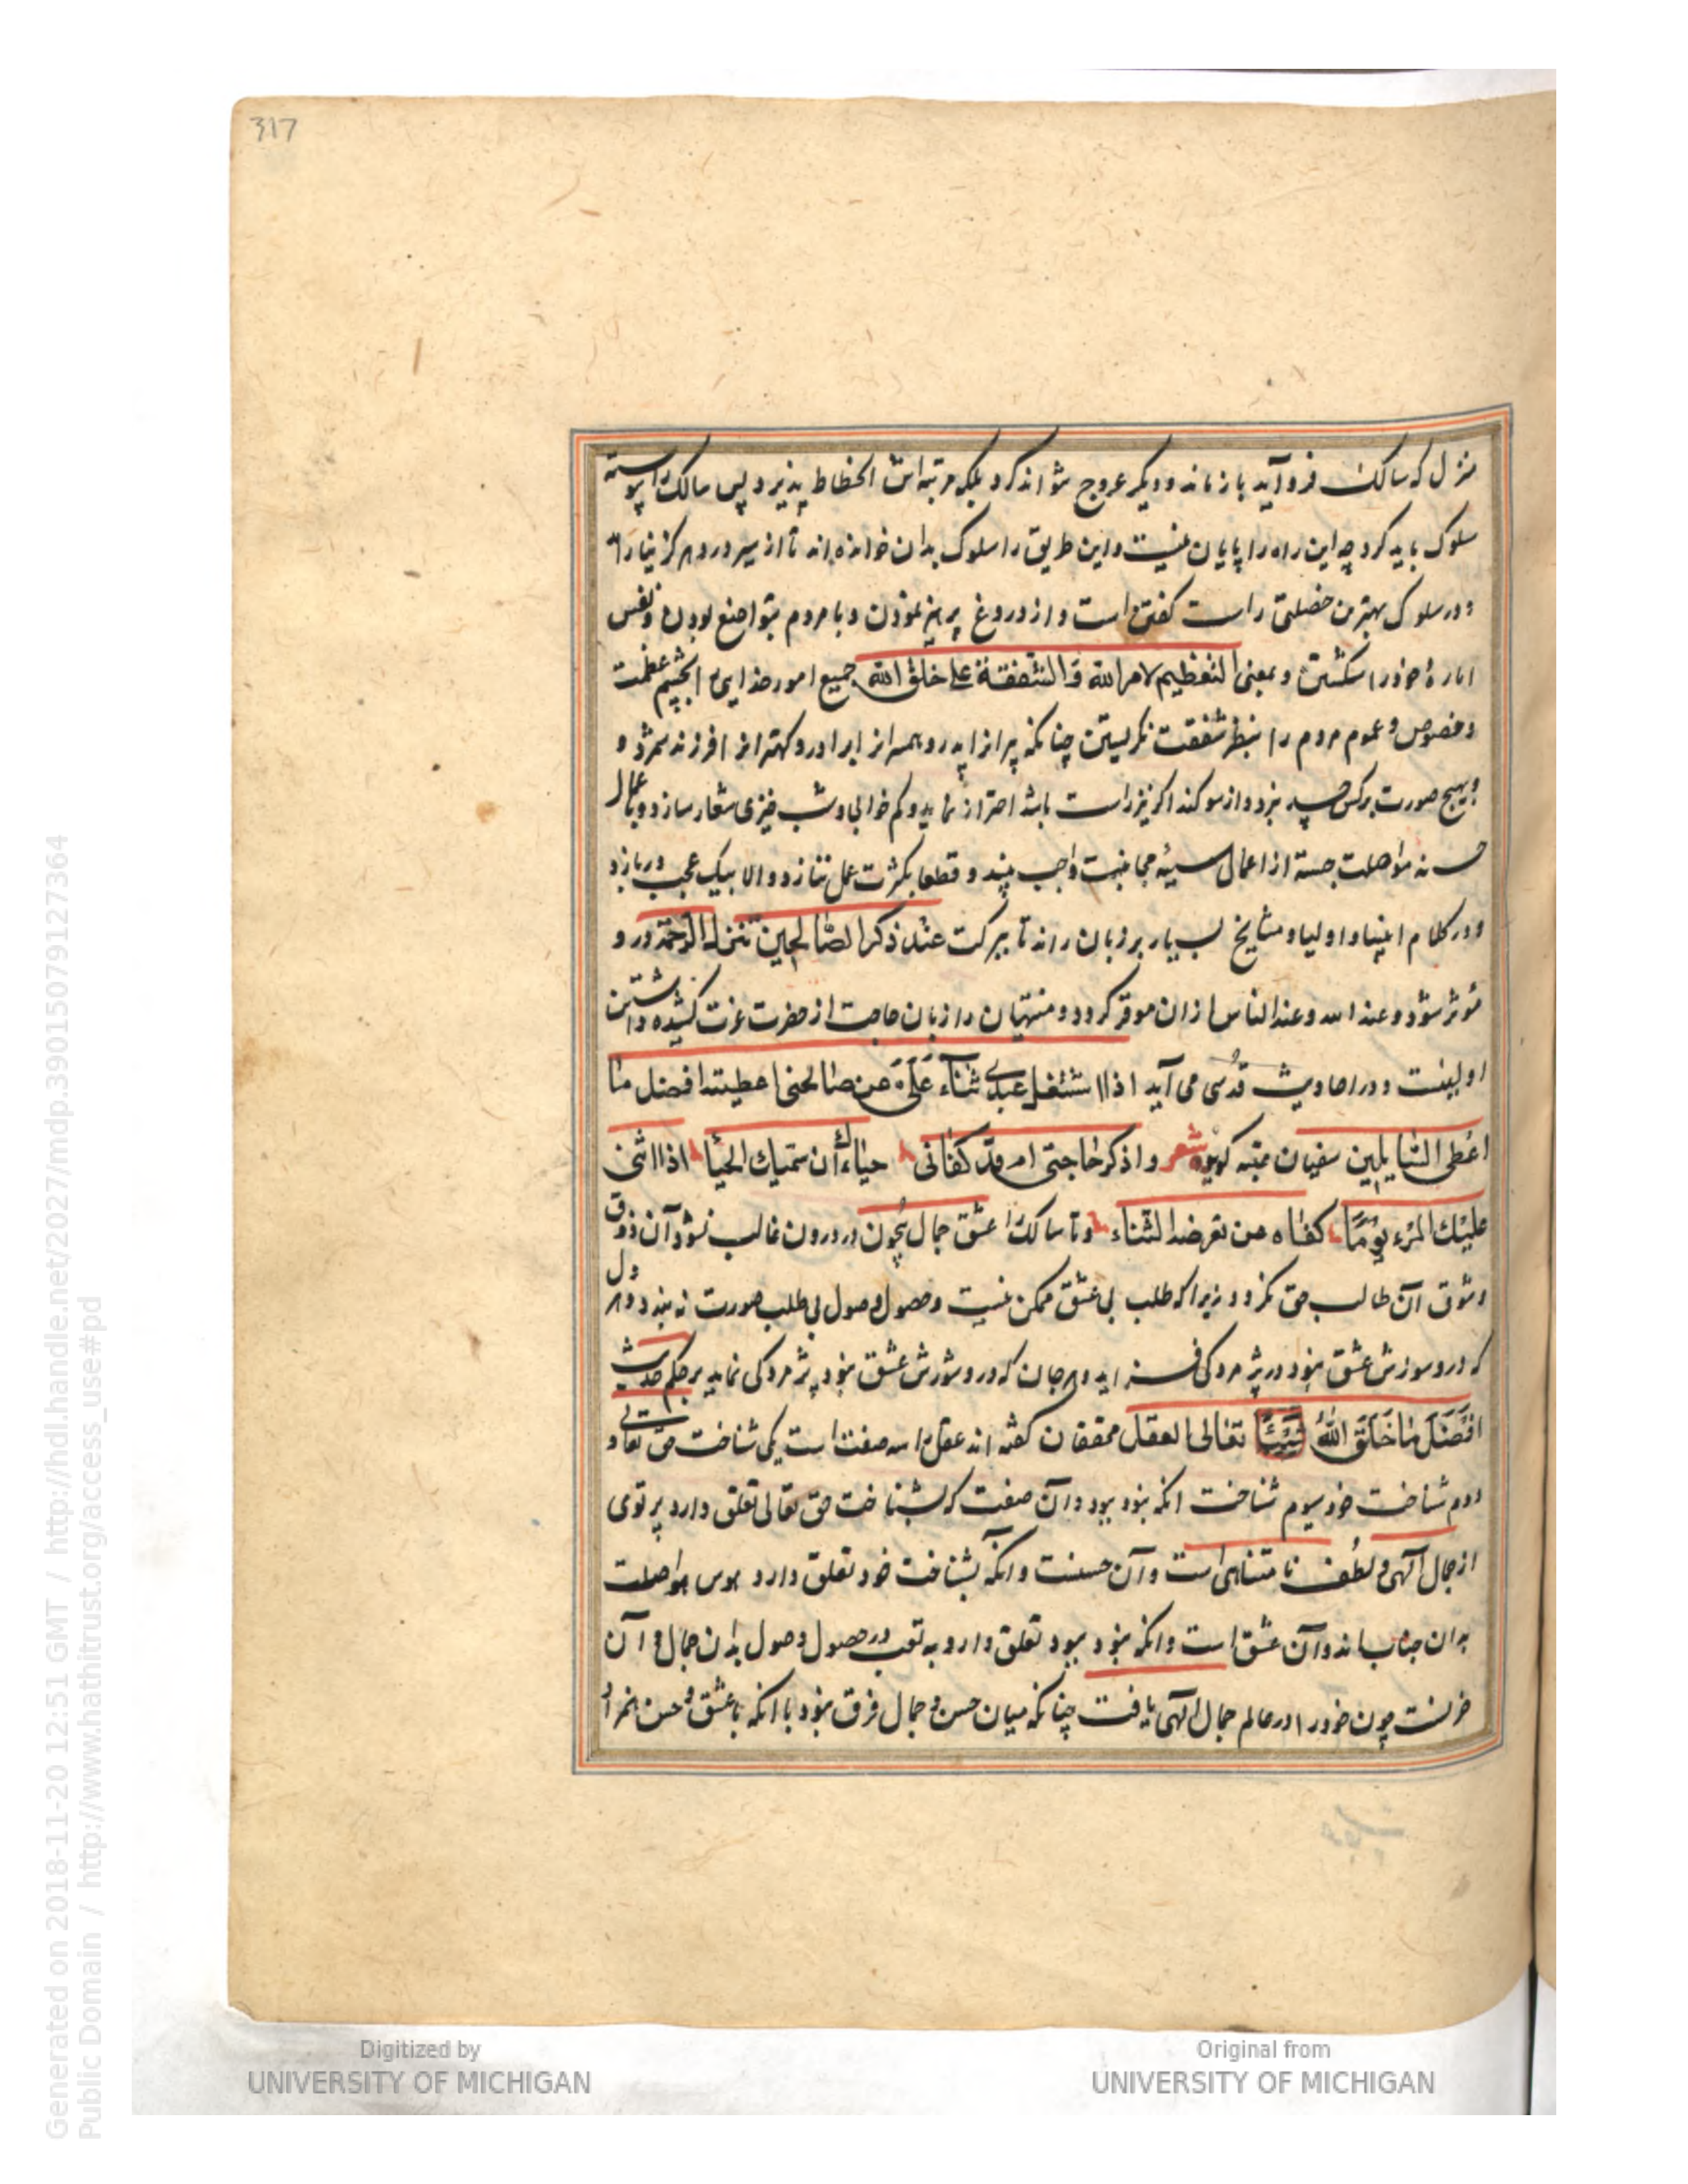 317
منزل که سالک فرو آید باز ماند و دیگر عروج نتواند کرد بلکه مرتبه اش انحطاط پذیرد پس سالک را پیوسته
سلوک باید کرد چه این راه را پایان نیست و این طریق را سلوک بدان خوانده اند تا از سیر و رود هرگز نیاراید
و در سلوک بهترین خصلتی راست گفتن است و از دروغ پرهیز نمودن و با مردم بتواضع بودن و نفس
اماره خود را شکستن و بمعنی التعظیم لامر الله و الشفقة علی خلق الله جمیع امور خدایی را بچشم عظمت
و خصوص و عموم مردم را بنظر شفقت نگریستن چنانکه پیرانرا پدر و همسرانرا برادر و کهترانرا فرزند شمرد و
و بهیچ صورت بر کس حسد نبرد و از سوگند اگر نیز راست باشد احتراز نماید و کم خوابی و شب خیزی شعار سازد و باعمال
حسنه مواصلت جسته از اعمال سیئه مجانبت واجب بیند و قطعا بکثرت عمل ننازد و الا بیک عجب دربازد
و در کلام انبیا و اولیا و مشایخ بسیار بر زبان راند تا ببرکت عند ذکر الصالحین تنزل الرحمة درو
موثر شود و عند الله و عند الناس ازان موقر گردد و منتهیان را زبان حاجت از حضرت عزت کشیده داشتن
اولیست و در احادیث قدسی می آید اذا اشتغل عبدی ثناء علی عن صالحنی اعطیته افضل ما
اعطی السایلین سفیان عتبه گوید شعر و اذکر حاجتی ام قد کفانی حیاءك أن سمتیك الحیا اذا اثنی
علیك المرء یوما کفاه من تعرضه الثناء و تا سالک را عشق جمال بیچون در درون غالب نشود آن ذوق
و شوق آن طالب حق نگردد زیرا که طلب بی عشق ممکن نیست و حصول وصول بی طلب صورت نه بندد و هر دل
که درو سوزش عشق نبود در پژمردگی فسرده اید و هر جان که درو شورش عشق نبود پژمردگی نماید بر حکم حدیث
افضل ما خلق الله شیئا تعالی العقل محققان گفته اند عقل را سه صفت است یکی شناخت حق تعالی و
دوم شناخت خود سیوم شناخت انکه نبود ببود و آن صفت که بشناخت حق تعالی تعلق دارد پرتوی
از جمال الهی و لطف نا متناهی است و آن حسنست و انکه بشناخت خود تعلق دارد هوس مواصلت
بدان جناب اند و آن عشق است و انکه نبود ببود تعلق دارد به تعب در حصول وصول بدان جمال و آن
حزنست چون خود را در عالم جمال الهی یافت چنانکه میان حسن و جمال فرق نبود با انکه با عشق و حسن همراه
Generated on 2018-11-20 12:51 GMT / http://hdl.handle.net/2027/mdp.39015079127364
Public Domain / http://www.hathitrust.org/access_use#pd
Digitized by
UNIVERSITY OF MICHIGAN
Original from
UNIVERSITY OF MICHIGAN